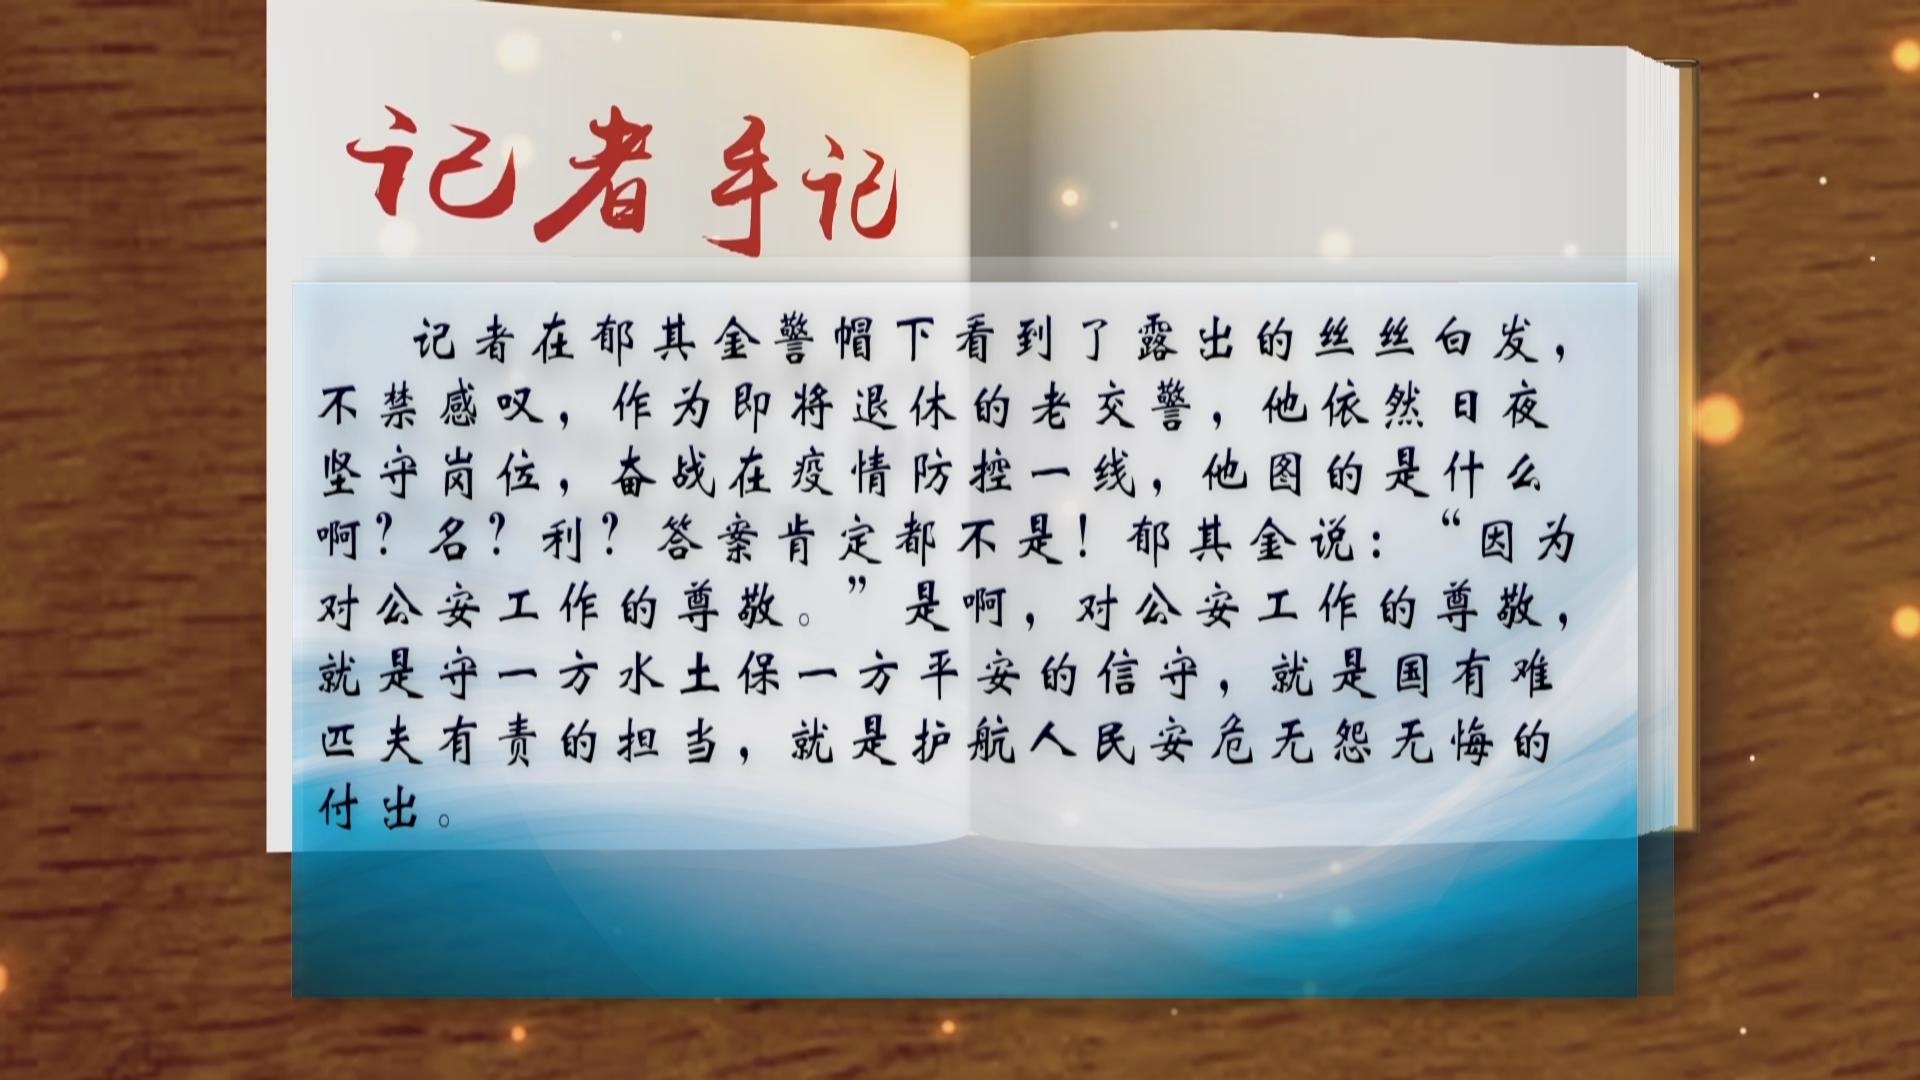 记者手记
记者在郁其金警帽下看到了露出的丝丝白发，
不禁感叹，作为即将退休的老交警，他依然日夜
坚守岗位，奋战在疫情防控一线，他图的是什么
啊？名？利？答案肯定都不是！郁其金说：“因为
对公安工作的尊敬。”是啊，对公安工作的尊敬，
就是守一方水土保一方平安的信守，就是国有难
匹夫有责的担当，就是护航人民安危无怨无悔的
付出。